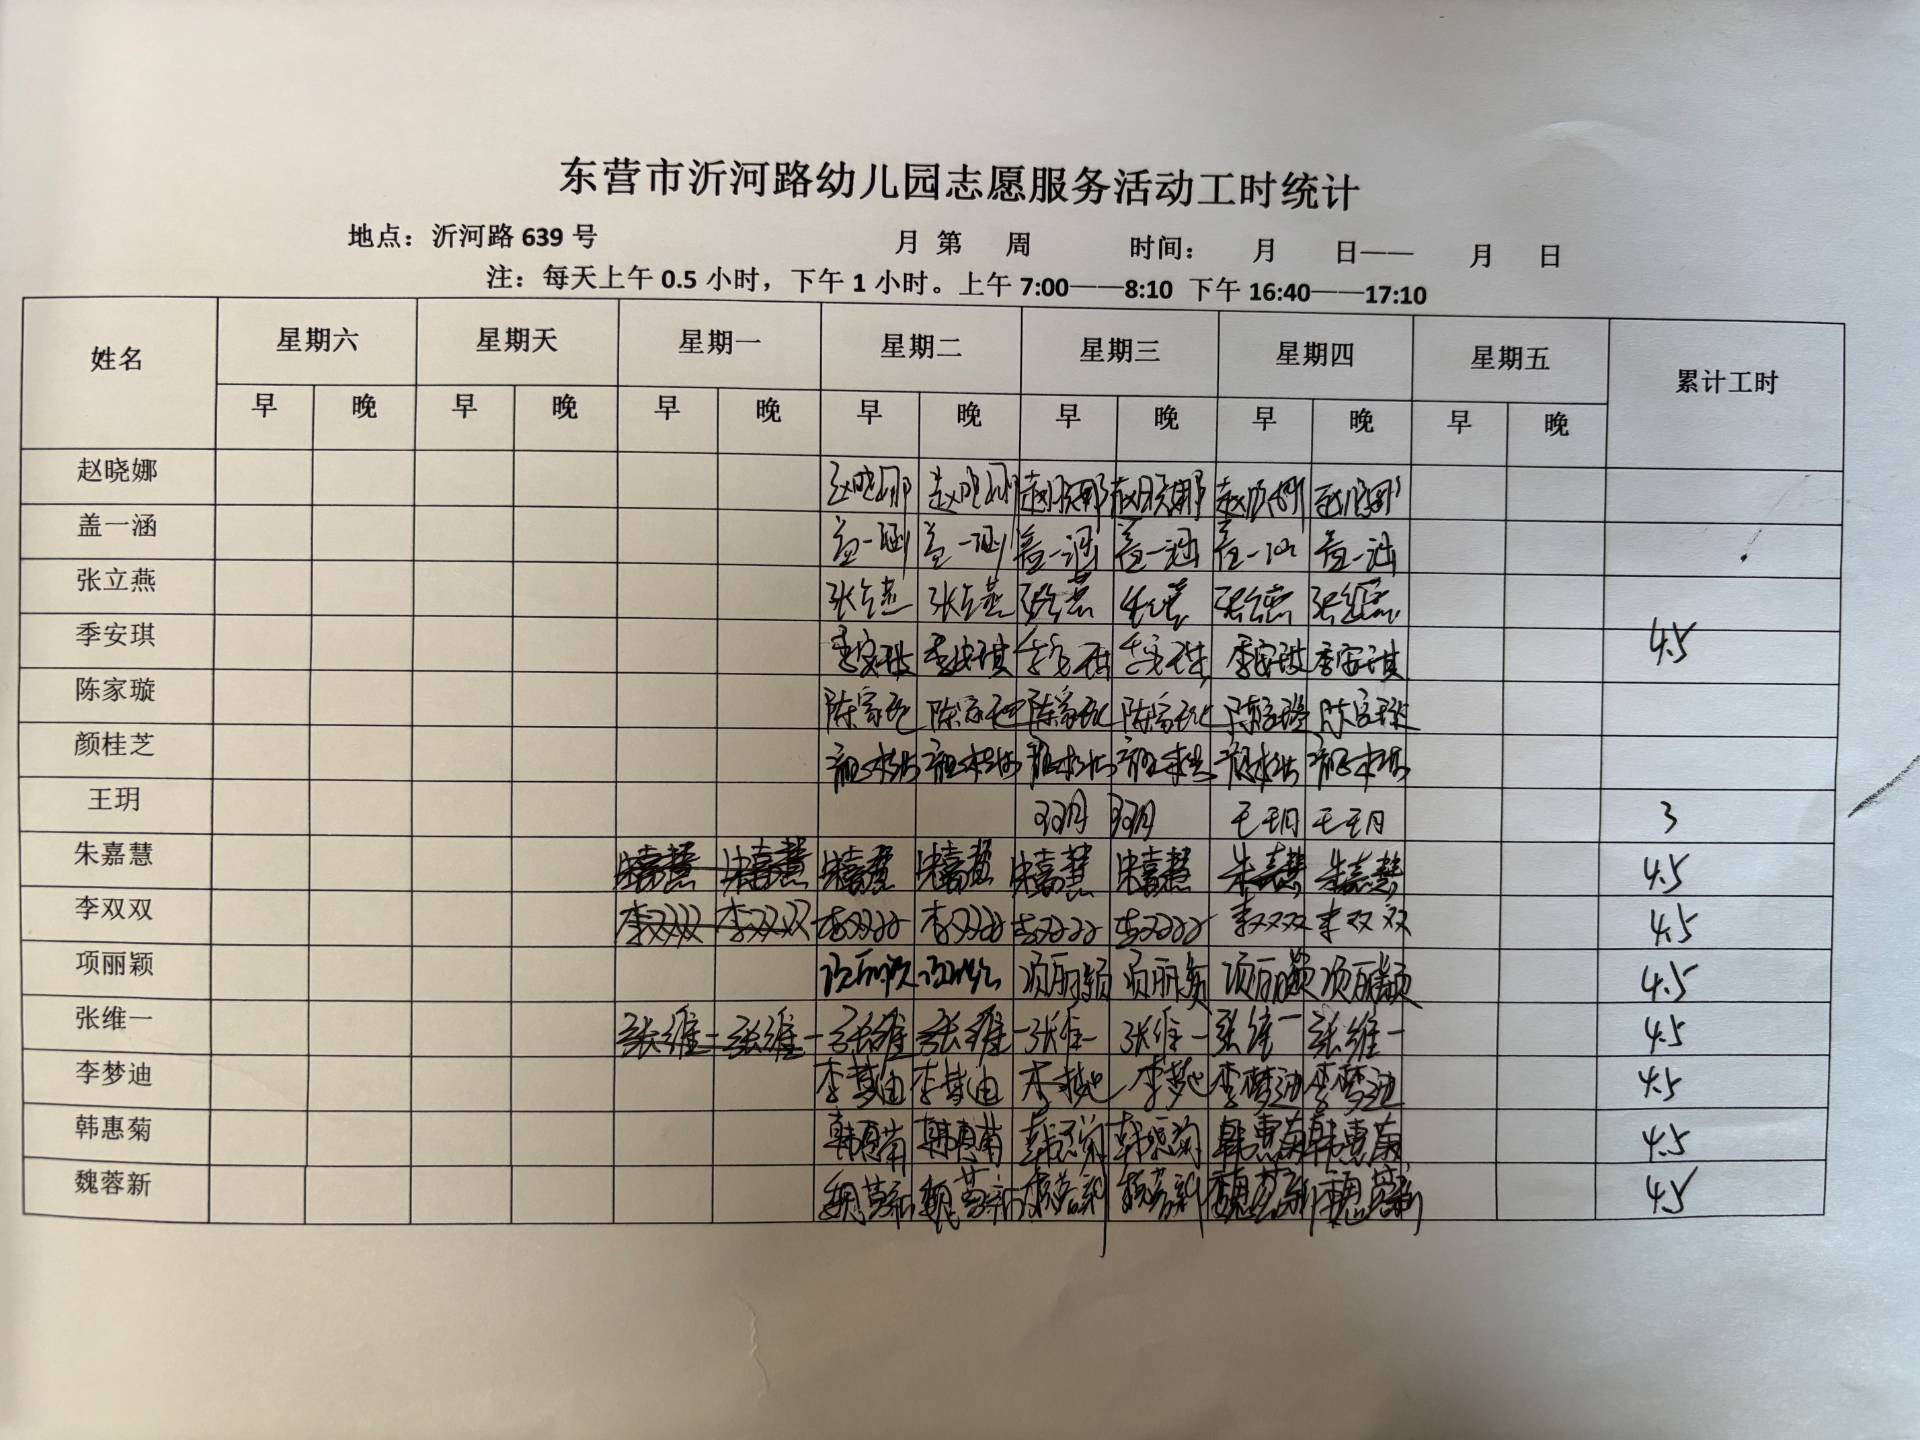 东营市沂河路幼儿园志愿服务活动工时统计
地点：沂河路 639 号 月 第 周 时间： 月 日—— 月 日
注：每天上午 0.5 小时，下午 1 小时。上午 7:00——8:10 下午 16:40——17:10
姓名 星期六 星期天 星期一 星期二 星期三 星期四 星期五 累计工时
早 晚 早 晚 早 晚 早 晚 早 晚 早 晚 早 晚
赵晓娜 赵晓娜 赵晓娜 赵晓娜 赵晓娜 赵晓娜 赵晓娜
盖一涵 盖一涵 盖一涵 盖一涵 盖一涵 盖一涵 盖一涵
张立燕 张立燕 张立燕 张立燕 张立燕 张立燕 张立燕
季安琪 季安琪 季安琪 季安琪 季安琪 季安琪 季安琪 4.5
陈家璇 陈家璇 陈家璇 陈家璇 陈家璇 陈家璇 陈家璇
颜桂芝 颜桂芝 颜桂芝 颜桂芝 颜桂芝 颜桂芝 颜桂芝
王玥 王玥 王玥 王玥 王玥 3
朱嘉慧 朱嘉慧 朱嘉慧 朱嘉慧 朱嘉慧 朱嘉慧 朱嘉慧 朱嘉慧 朱嘉慧 4.5
李双双 李双双 李双双 李双双 李双双 李双双 李双双 李双双 李双双 4.5
项丽颖 项丽颖 项丽颖 项丽颖 项丽颖 项丽颖 项丽颖 4.5
张维一 张维一 张维一 张维一 张维一 张维一 张维一 张维一 张维一 4.5
李梦迪 李梦迪 李梦迪 李梦迪 李梦迪 李梦迪 李梦迪 4.5
韩惠菊 韩惠菊 韩惠菊 韩惠菊 韩惠菊 韩惠菊 韩惠菊 4.5
魏蓉新 魏蓉新 魏蓉新 魏蓉新 魏蓉新 魏蓉新 魏蓉新 4.5